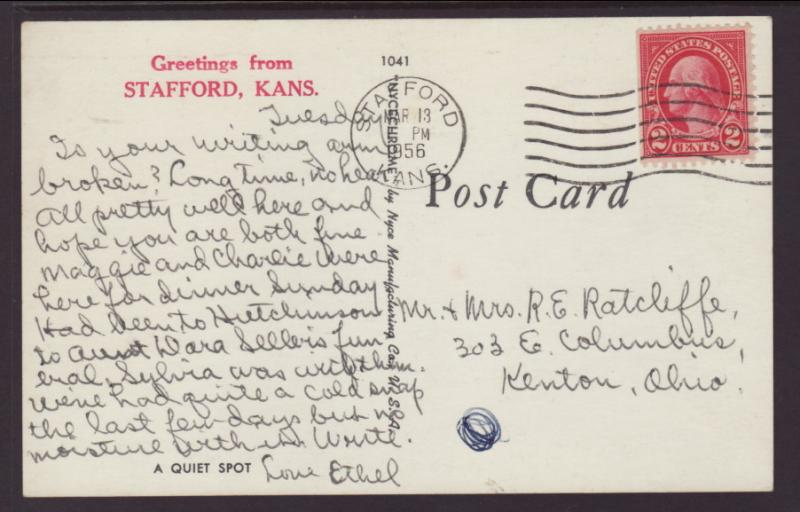 Greetings from
STAFFORD, KANS.
1041
STAFFORD
MAR 13
PM
1956
KANS.
UNITED STATES POSTAGE
2 CENTS 2
Tuesday
Is your writing arm
broken? Long time, no hear
All pretty well here and
hope you are both fine
Maggie and Charlie were
here for dinner Sunday
Had been to Hutchinson
to Aunt Dara Sellers fun-
eral. Sylvia was with them.
weve had quite a cold snap
the last few days but no
moisture with it. Write.
Love Ethel
A QUIET SPOT
"NYCECHROME" by Nyce Manufacturing Co. U.S.A.
Post Card
Mr. + Mrs. R. E. Ratcliffe,
303 E. Columbus,
Kenton, Ohio.